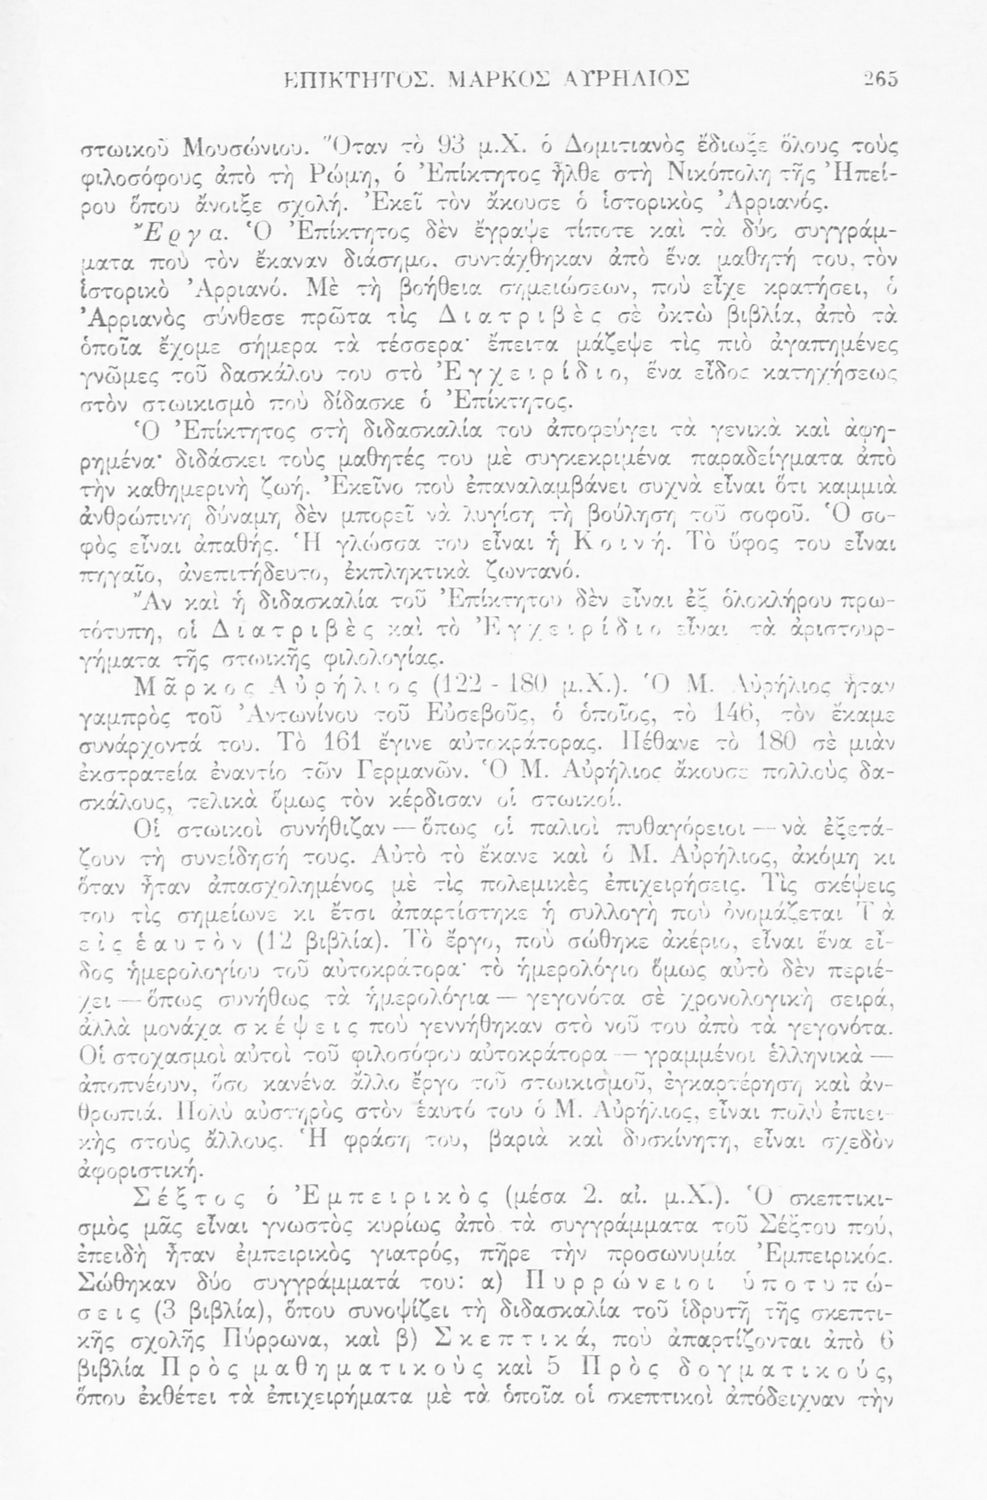 ΕΠΙΚΤΗΤΟΣ. ΜΑΡΚΟΣ ΑΥΡΗΛΙΟΣ 265
στωικοῦ Μουσώνιου. Ὅταν τὸ 93 μ.Χ. ὁ Δομιτιανὸς ἔδιωξε ὅλους τοὺς
φιλοσόφους ἀπὸ τὴ Ρώμη, ὁ Ἐπίκτητος ἦλθε στὴ Νικόπολη τῆς Ἠπεί-
ρου ὅπου ἄνοιξε σχολή. Ἐκεῖ τὸν ἄκουσε ὁ ἱστορικὸς Ἀρριανός.
Ἔργα. Ὁ Ἐπίκτητος δὲν ἔγραψε τίποτε καὶ τὰ δύο συγγράμ-
ματα ποὺ τὸν ἔκαναν διάσημο, συντάχθηκαν ἀπὸ ἕνα μαθητή του, τὸν
ἱστορικὸ Ἀρριανό. Μὲ τὴ βοήθεια σημειώσεων, ποὺ εἶχε κρατήσει, ὁ
Ἀρριανὸς σύνθεσε πρῶτα τὶς Διατριβὲς σὲ ὀκτὼ βιβλία, ἀπὸ τὰ
ὁποῖα ἔχομε σήμερα τὰ τέσσερα· ἔπειτα μάζεψε τὶς πιὸ ἀγαπημένες
γνῶμες τοῦ δασκάλου του στὸ Ἐγχειρίδιο, ἕνα εἶδος κατηχήσεως
στὸν στωικισμὸ ποὺ δίδασκε ὁ Ἐπίκτητος.
Ὁ Ἐπίκτητος στὴ διδασκαλία του ἀποφεύγει τὰ γενικὰ καὶ ἀφη-
ρημένα· διδάσκει τοὺς μαθητές του μὲ συγκεκριμένα παραδείγματα ἀπὸ
τὴν καθημερινὴ ζωή. Ἐκεῖνο ποὺ ἐπαναλαμβάνει συχνὰ εἶναι ὅτι καμμιὰ
ἀνθρώπινη δύναμη δὲν μπορεῖ νὰ λυγίση τὴ βούληση τοῦ σοφοῦ. Ὁ σο-
φὸς εἶναι ἀπαθής. Ἡ γλώσσα του εἶναι ἡ Κοινή. Τὸ ὕφος του εἶναι
πηγαῖο, ἀνεπιτήδευτο, ἐκπληκτικὰ ζωντανό.
Ἂν καὶ ἡ διδασκαλία τοῦ Ἐπίκτητου δὲν εἶναι ἐξ ὁλοκλήρου πρω-
τότυπη, οἱ Διατριβὲς καὶ τὸ Ἐγχειρίδιο εἶναι τὰ ἀριστουρ-
γήματα τῆς στωικῆς φιλολογίας.
Μᾶρκος Αὐρήλιος (122 - 180 μ.Χ.). Ὁ Μ. Αὐρήλιος ἦταν
γαμπρὸς τοῦ Ἀντωνίνου τοῦ Εὐσεβοῦς, ὁ ὁποῖος, τὸ 146, τὸν ἔκαμε
συνάρχοντά του. Τὸ 161 ἔγινε αὐτοκράτορας. Πέθανε τὸ 180 σὲ μιὰν
ἐκστρατεία ἐναντίο τῶν Γερμανῶν. Ὁ Μ. Αὐρήλιος ἄκουσε πολλοὺς δα-
σκάλους, τελικὰ ὅμως τὸν κέρδισαν οἱ στωικοί.
Οἱ στωικοὶ συνήθιζαν — ὅπως οἱ παλιοὶ πυθαγόρειοι — νὰ ἐξετά-
ζουν τὴ συνείδησή τους. Αὐτὸ τὸ ἔκανε καὶ ὁ Μ. Αὐρήλιος, ἀκόμη κι
ὅταν ἦταν ἀπασχολημένος μὲ τὶς πολεμικὲς ἐπιχειρήσεις. Τὶς σκέψεις
του τὶς σημείωνε κι ἔτσι ἀπαρτίστηκε ἡ συλλογὴ ποὺ ὀνομάζεται Τὰ
εἰς ἑαυτὸν (12 βιβλία). Τὸ ἔργο, ποὺ σώθηκε ἀκέριο, εἶναι ἕνα εἶ-
δος ἡμερολογίου τοῦ αὐτοκράτορα· τὸ ἡμερολόγιο ὅμως αὐτὸ δὲν περιέ-
χει — ὅπως συνήθως τὰ ἡμερολόγια — γεγονότα σὲ χρονολογικὴ σειρά,
ἀλλὰ μονάχα σκέψεις ποὺ γεννήθηκαν στὸ νοῦ του ἀπὸ τὰ γεγονότα.
Οἱ στοχασμοὶ αὐτοὶ τοῦ φιλοσόφου αὐτοκράτορα — γραμμένοι ἑλληνικὰ —
ἀποπνέουν, ὅσο κανένα ἄλλο ἔργο τοῦ στωικισμοῦ, ἐγκαρτέρηση καὶ ἀν-
θρωπιά. Πολὺ αὐστηρὸς στὸν ἑαυτό του ὁ Μ. Αὐρήλιος, εἶναι πολὺ ἐπιει-
κὴς στοὺς ἄλλους. Ἡ φράση του, βαριὰ καὶ δυσκίνητη, εἶναι σχεδὸν
ἀφοριστική.
Σέξτος ὁ Ἐμπειρικὸς (μέσα 2. αἰ. μ.Χ.). Ὁ σκεπτικι-
σμὸς μᾶς εἶναι γνωστὸς κυρίως ἀπὸ τὰ συγγράμματα τοῦ Σέξτου πού,
ἐπειδὴ ἦταν ἐμπειρικὸς γιατρός, πῆρε τὴν προσωνυμία Ἐμπειρικός.
Σώθηκαν δύο συγγράμματά του: α) Πυρρώνειοι ὑποτυπώ-
σεις (3 βιβλία), ὅπου συνοψίζει τὴ διδασκαλία τοῦ ἱδρυτῆ τῆς σκεπτι-
κῆς σχολῆς Πύρρωνα, καὶ β) Σκεπτικά, ποὺ ἀπαρτίζονται ἀπὸ 6
βιβλία Πρὸς μαθηματικοὺς καὶ 5 Πρὸς δογματικούς,
ὅπου ἐκθέτει τὰ ἐπιχειρήματα μὲ τὰ ὁποῖα οἱ σκεπτικοὶ ἀπόδειχναν τὴν